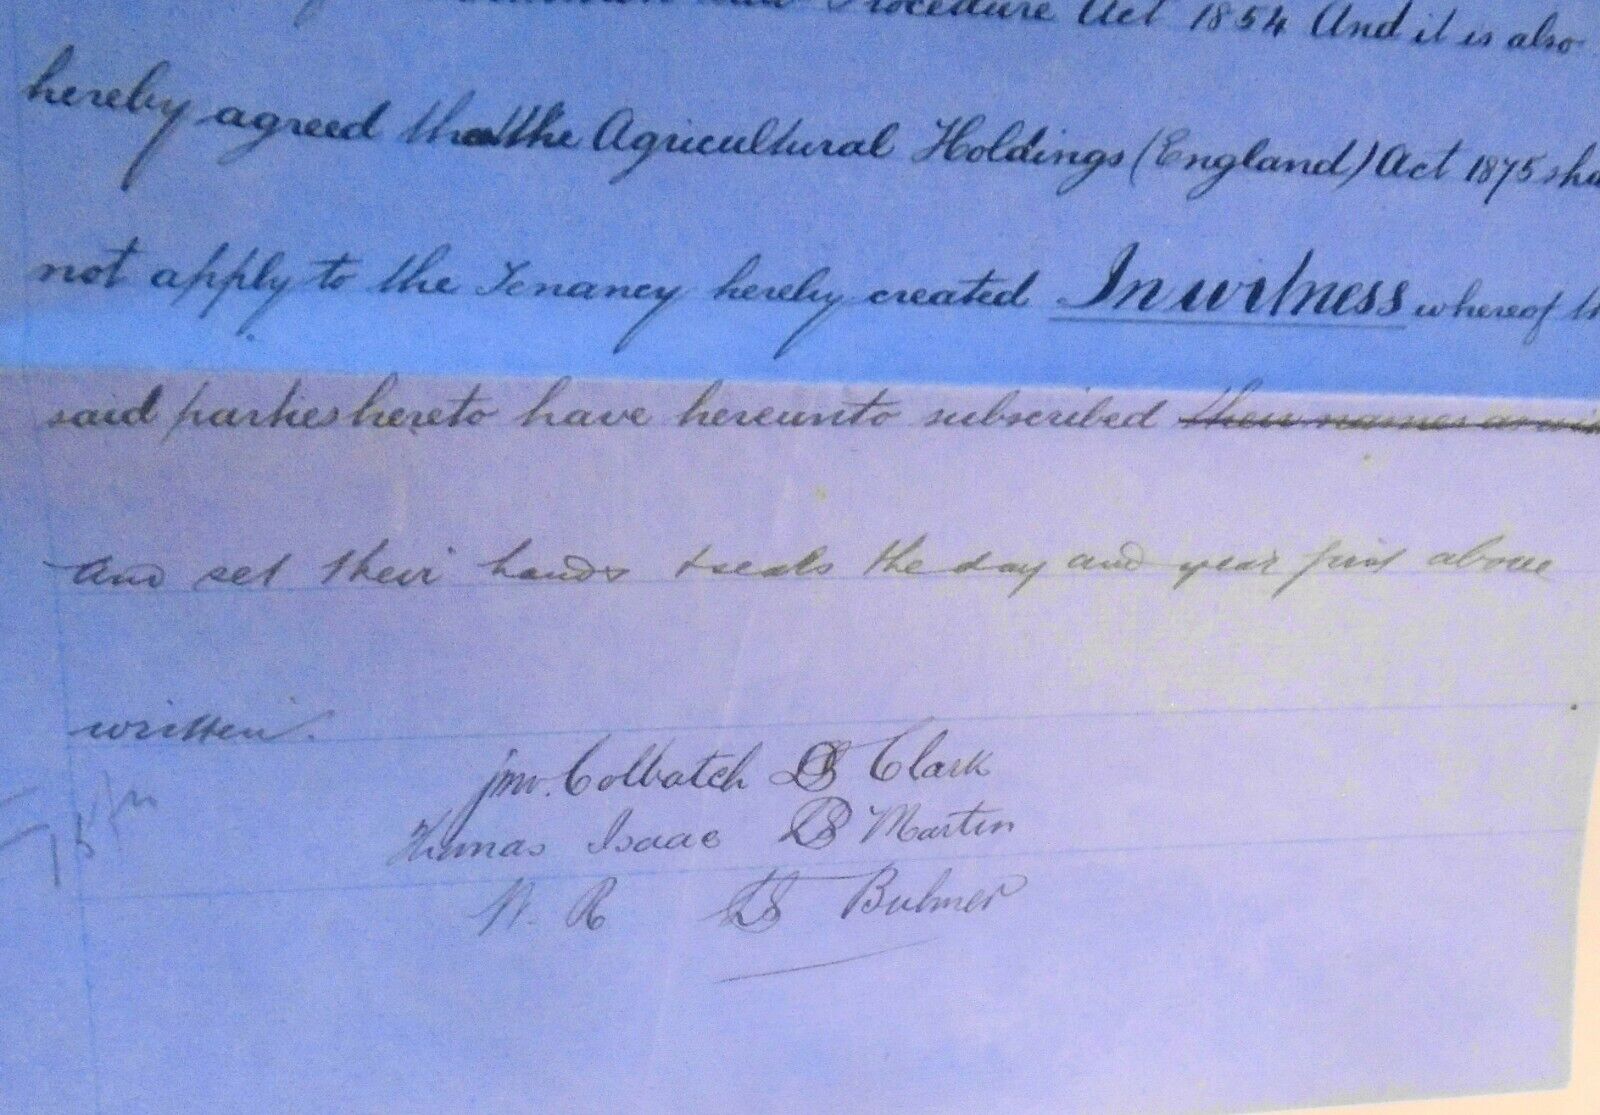 Procedure Act 1854 And it is also
hereby agreed that the Agricultural Holdings (England) Act 1875 sha
not apply to the Tenancy hereby created In witness whereof th
said parties hereto have hereunto subscribed their names as wit
and set their hands & seals the day and year first above
written.
Jno. Colbatch LS Clark
Thomas Isaac LS Martin
W. R LS Bulmer